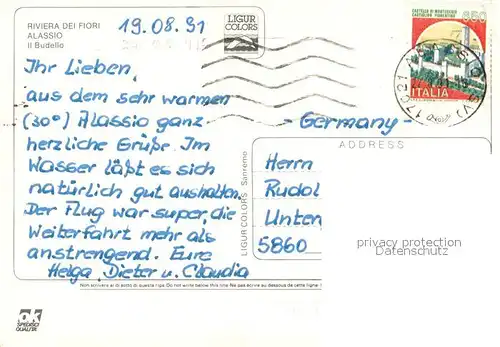 RIVIERA DEI FIORI
ALASSIO
Il Budello
19.08.91
LIGUR
COLORS
Ihr Lieben,
aus dem sehr warmen
(30°) Alassio ganz
herzliche Grüße. Im
Wasser läßt es sich
natürlich gut aushalten.
Der Flug war super, die
Weiterfahrt mehr als
anstrengend. Eure
Helga, Dieter u. Claudia
LIGUR COLORS Sanremo
CASTELLO DI MONTECCHIO
CASTIGLION FIORENTINO
ITALIA
- Germany -
ADDRESS
Herrn
Rudol
Unter
5860
privacy protection
Datenschutz
Non scrivere al di sotto di questa riga Do not write below this line Ne pas écrire au dessous de cette ligne
ok
SPEDISCI
QUALITÀ